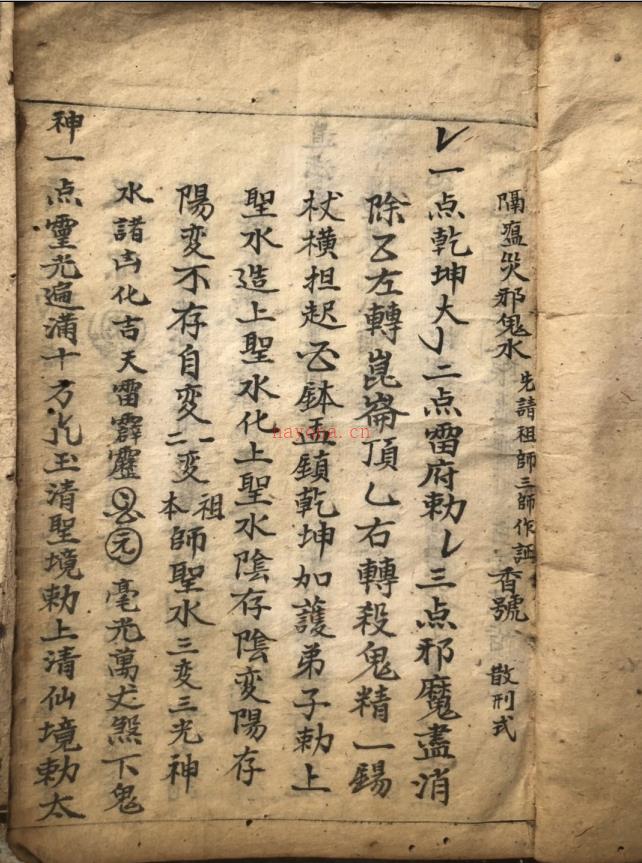 隔瘟災邪鬼水 先請祖師三師作証 香號 散刑式
一点乾坤大 二点雷府勅 三点邪魔盡消
除 左轉崑崙頂 右轉殺鬼精一錫
杖橫担起 鉢盂鎮乾坤加護弟子勅上
聖水造上聖水化上聖水陰存陰変陽存
陽変不存自変一変祖二変本師聖水三变三光神
水諸凶化吉天雷霹靂 元 毫光萬丈煞下鬼
神一点靈光遍滿十方 玉清聖境勅上清仙境勅太
hayeha.cn